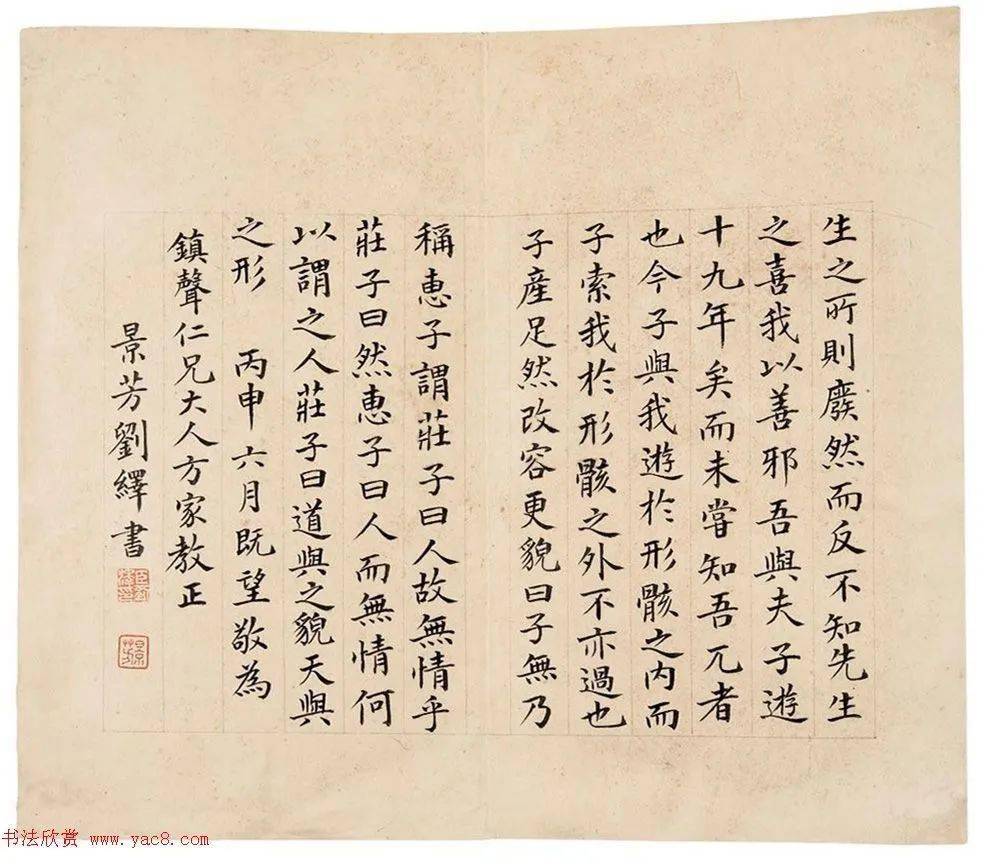 生之所則廢然而反不知先生
之喜我以善邪吾與夫子遊
十九年矣而未嘗知吾兀者
也今子與我遊於形骸之内而
子索我於形骸之外不亦過也
子產足然改容更貌曰子無乃
稱惠子謂莊子曰人故無情乎
莊子曰然惠子曰人而無情何
以謂之人莊子曰道與之貌天與
之形 丙申六月既望敬為
鎮聲仁兄大人方家教正
景芳劉繹書
臣劉繹印
景芳
书法欣赏 www.yac8.com